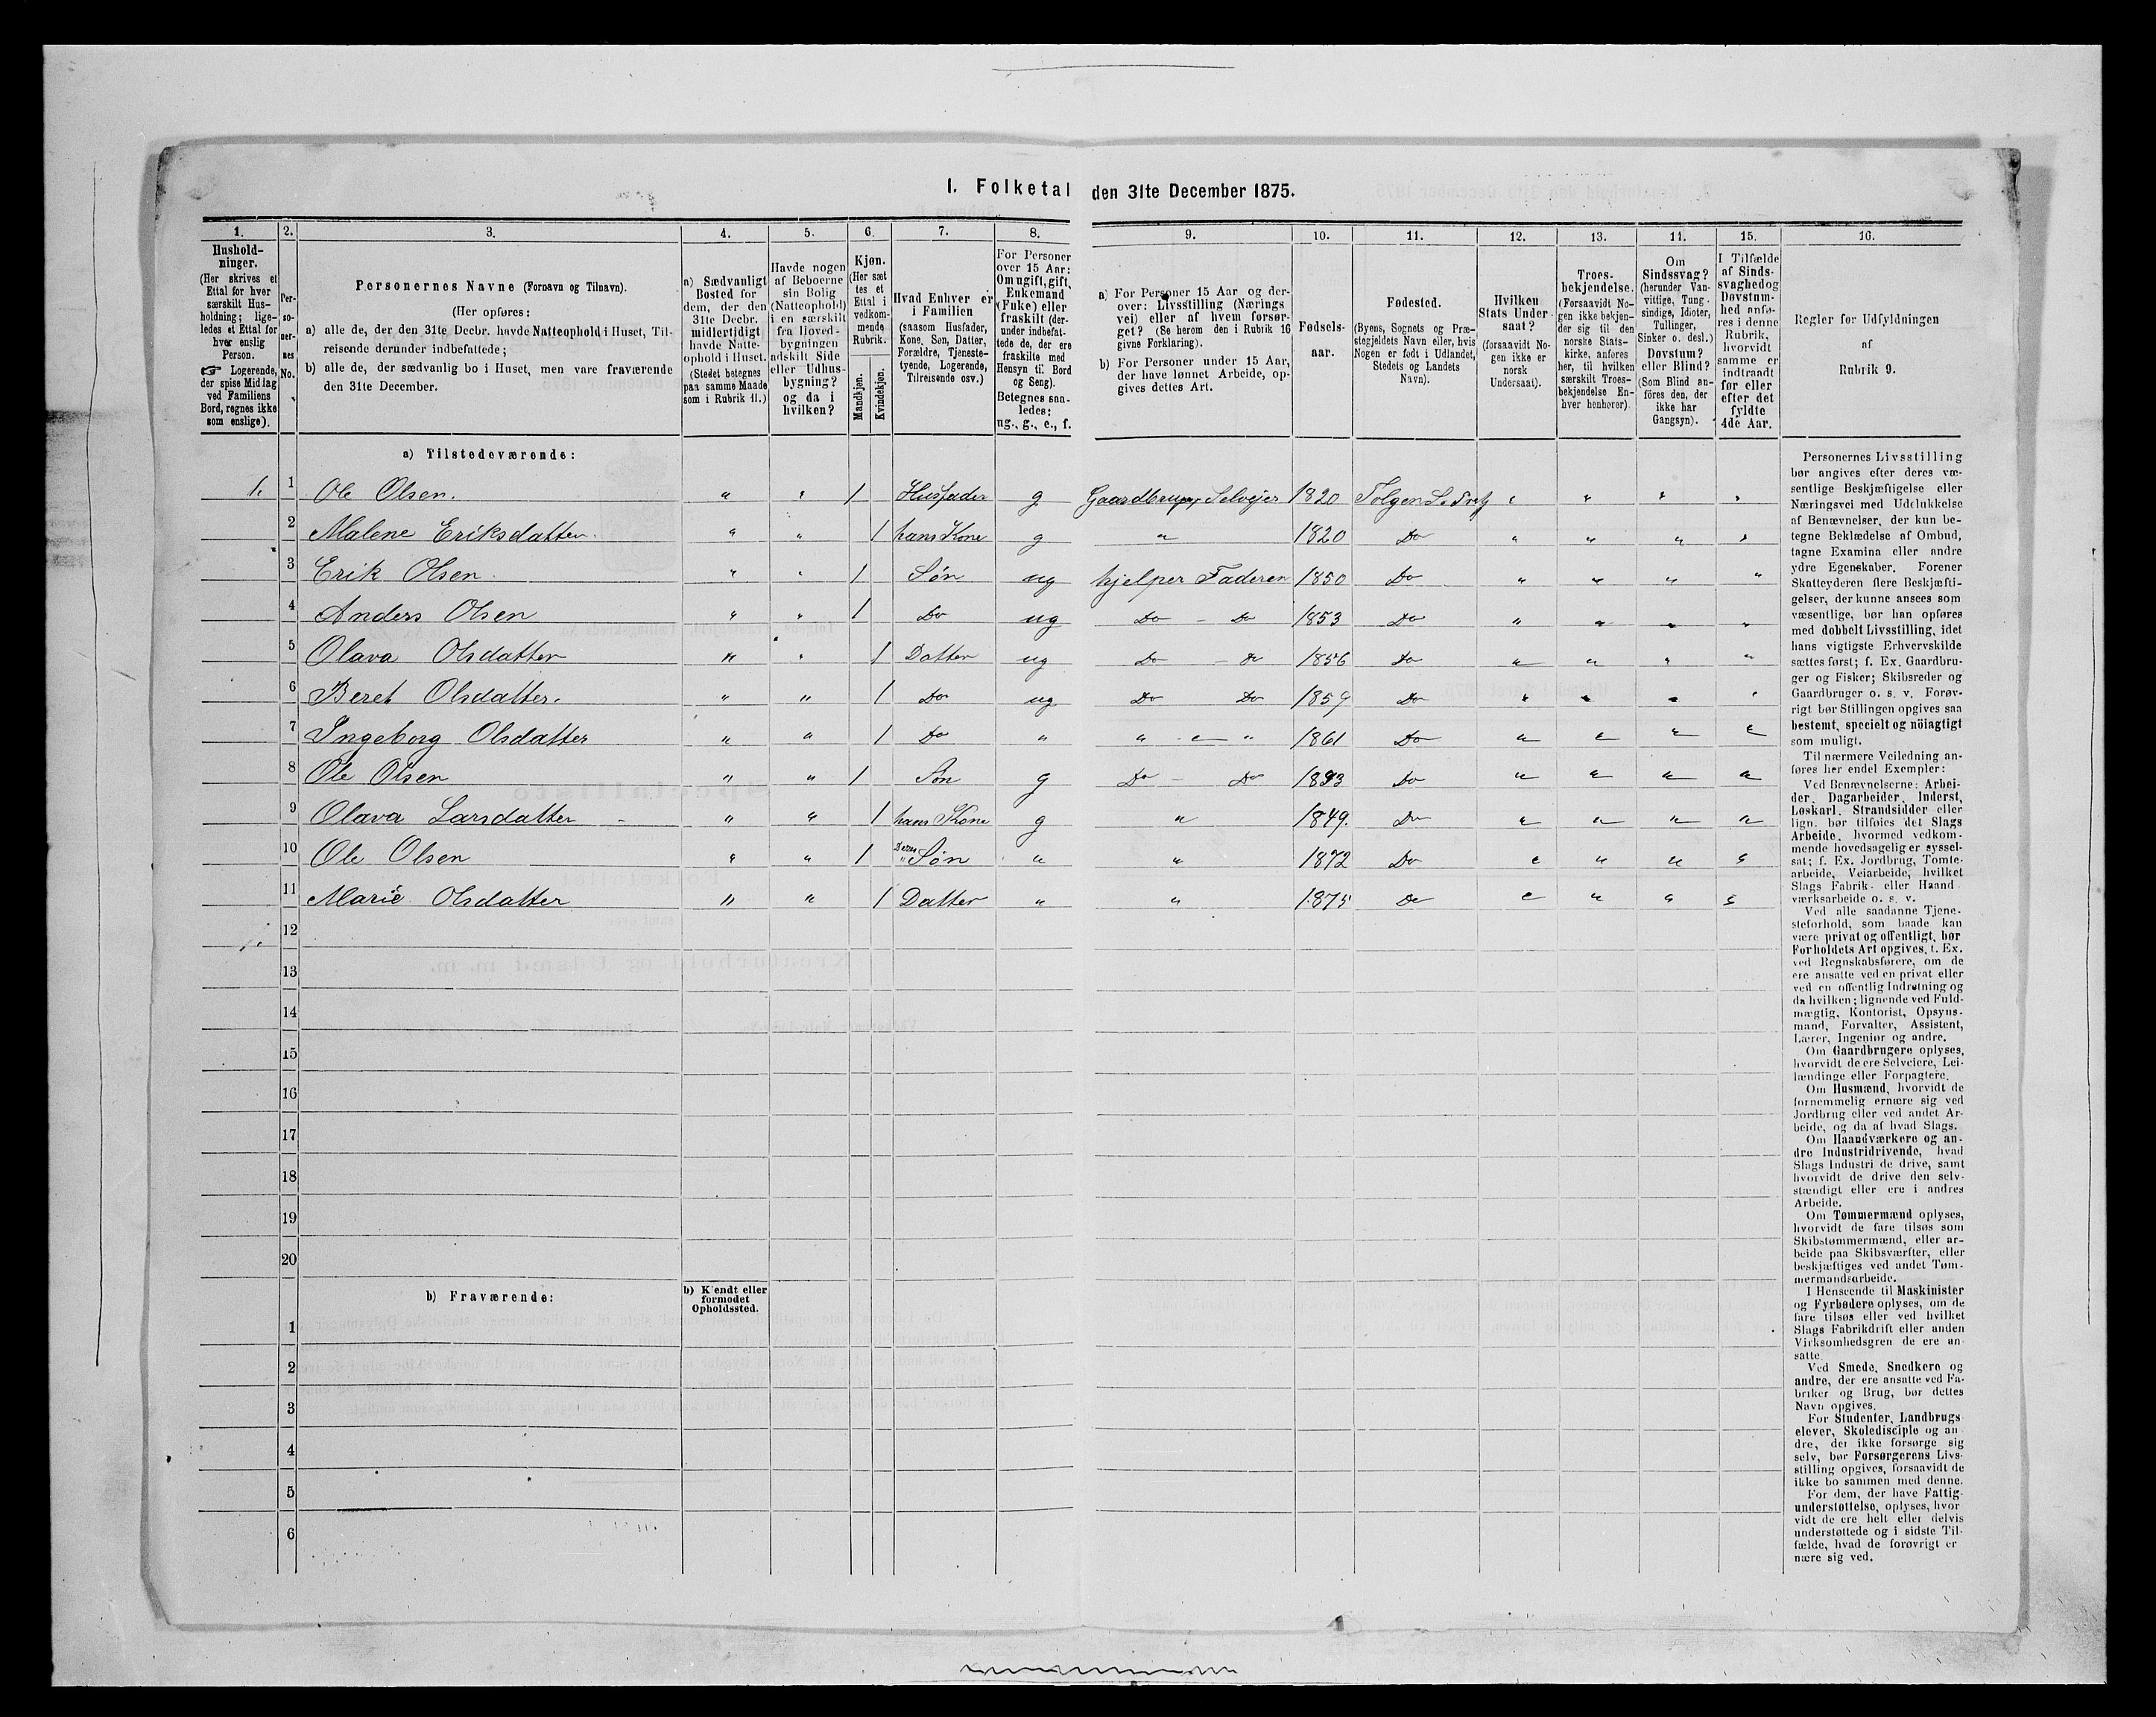 1. Folketal den 31te December 1875.
1. 2. 3. 4. 5. 6. 7. 8. 9. 10. 11. 12. 13. 14. 15. 16.
Hushold-
ninger.
(Her skrives et
Ettal for hver
særskilt Hus-
holdning; lige-
ledes et Ettal for
hver enslig
Person.
☞ Logerende,
der spise Middag
ved Familiens
Bord, regnes ikke
som enslige).
Per-
so-
ner-
nes
No.
Personernes Navne (Fornavn og Tilnavn).
(Her opføres:
a) alle de, der den 31te Decbr. havde Natteophold i Huset, Til-
reisende derunder indbefattede;
b) alle de, der sædvanlig bo i Huset, men vare fraværende
den 31te December.
a) Sædvanligt
Bosted for
dem, der den
31te Decbr.
midlertidigt
havde Natte-
ophold i Huset.
(Stedet betegnes
paa samme Maade
som i Rubrik 11.)
Havde nogen
af Beboerne
sin Bolig
(Natteophold)
i en særskilt
fra Hoved-
bygningen
adskilt Side
eller Udhus-
bygning?
og da i
hvilken?
Kjøn.
(Her sæt
tes et
Ettal i
vedkom-
mende
Rubrik.
Mandkjøn.
Kvindekjøn.
Hvad Enhver er
i Familien
(saasom Husfader,
Kone, Søn, Datter,
Forældre, Tjeneste-
tyende, Logerende,
Tilreisende osv.)
For Personer
over 15 Aar:
Om ugift, gift,
Enkemand
(Enke) eller
fraskilt (der-
under indbefat-
tede de, der ere
fraskilte med
Hensyn til Bord
og Seng).
Betegnes saa-
ledes:
ug., g., e., f.
a) For Personer 15 Aar og der-
over: Livsstilling (Nærings
vei) eller af hvem forsør-
get? (Se herom den i Rubrik 16
givne Forklaring).
b) For Personer under 15 Aar,
der have lønnet Arbeide, op-
gives dettes Art.
Fødsels-
aar.
Fødested.
(Byens, Sognets og Præ-
stegjeldets Navn eller, hvis
Nogen er født i Udlandet,
Stedets og Landets
Navn).
Hvilken
Stats Under
saat?
(forsaavidt No-
gen ikke er
norsk
Undersaat).
Troes-
bekjendelse.
(Forsaavidt No-
gen ikke bekjen-
der sig til den
norske Stats-
kirke, anføres
her, til hvilken
særskilt Troes-
bekjendelse En-
hver henhører).
Om
Sindssvag?
(herunder Van-
vittige, Tung-
sindige, Idioter,
Tullinger,
Sinker o. desl.)
Døvstum?
eller Blind?
(Som Blind an-
føres den, der
ikke har
Gangsyn).
I Tilfælde
af Sinds-
svaghed og
Døvstum-
hed anfø-
res i denne
Rubrik,
hvorvidt
samme er
indtraadt
før eller
efter det
fyldte
4de Aar.
Regler for Udfyldningen
af
Rubrik 9.
a) Tilstedeværende:
1. 1 Ole Olsen. " " 1 Husfader g Gaardbruger, Selveier 1820 " " " "
2 Malene Eriksdatter. " " 1 hans Kone g " 1820 Do " " " "
3 Erik Olsen " " 1 Søn ug hjelper Faderen 1850 Do " " " "
4 Anders Olsen " " 1 Do ug Do - Do 1853 Do " " " "
5 Olava Olsdatter " " 1 Datter ug Do - Do 1856 Do " " " "
6 Beret Olsdatter. " " 1 Do ug Do Do 1859 Do " " " "
7 Ingeborg Olsdatter " " 1 Do " " " " 1861 Do " " " "
8 Ole Olsen " " 1 Søn g Do - Do Do " " " "
9 Olava Larsdatter " " 1 hans Kone g " 1849. Do " " " "
10 Ole Olsen " " 1 Deres Søn " " 1872 Do " " " "
11 Marie Olsdatter " " 1 Datter " " 1875 Do " " " "
12
13
14
15
16
17
18
19
20
b) Fraværende:
b) Kjendt eller
formodet
Opholdssted.
1
2
3
4
5
6
Personernes Livsstilling
bør angives efter deres væ-
sentlige Beskjæftigelse eller
Næringsvei med Udelukkelse
af Benævnelser, der kun be-
tegne Beklædelse af Ombud,
tagne Examina eller andre
ydre Egenskaber. Forener
Skatteyderen flere Beskjæfti-
gelser, der kunne ansees som
væsentlige, bør han opføres
med dobbelt Livsstilling, idet
hans vigtigste Erhvervskilde
sættes først; f. Ex. Gaardbru-
ger og Fisker; Skibsreder og
Gaardbruger o. s. v. Forøv-
rigt bør Stillingen opgives saa
bestemt, specielt og nöiagtigt
som muligt.
Til nærmere Veiledning an-
føres her endel Exempler:
Ved Benævnelserne: Arbei-
der, Dagarbeider, Inderst,
Løskarl, Strandsidder eller
lign. bør tilføies det Slags
Arbeide, hvormed vedkom-
mende hovedsagelig er syssel-
sat; f. Ex. Jordbrug, Tomte-
arbeide, Veiarbeide, hvilket
Slags Fabrik- eller Haand-
værksarbeide o. s. v.
Ved alle saadanne Tjene-
steforhold, som baade kan
være privat og offentligt, bør
Forholdets Art opgives, f. Ex.
ved Regnskabsførere, om de
ere ansatte ved en privat eller
ved en offentlig Indretning og
da hvilken; lignende ved Fuld-
mægtig, Kontorist, Opsyns-
mand, Forvalter, Assistent,
Lærer, Ingeniør og andre.
Om Gaardbrugere oplyses,
hvorvidt de ere Selveiere, Lei-
lændinge eller Forpagtere.
Om Husmænd, hvorvidt de
fornemmelig ernære sig ved
Jordbrug eller ved andet Ar-
beide, og da af hvad Slags.
Om Haandværkere og an-
dre Industridrivende, hvad
Slags Industri de drive, samt
hvorvidt de drive den selv-
stændigt eller ere i andres
Arbeide.
Om Tømmermænd oplyses,
hvorvidt de fare tilsøs som
Skibstømmermænd, eller ar-
beide paa Skibsværfter, eller
beskjæftiges ved andet Tøm-
mermandsarbeide.
I Henseende til Maskinister
og Fyrbødere oplyses, om de
fare tilsøs eller ved hvilket
Slags Fabrikdrift eller anden
Virksomhedsgren de ere an-
satte
Ved Smede, Snedkere og
andre, der ere ansatte ved Fa-
briker og Brug, bør dettes
Navn opgives.
For Studenter, Landbrugs-
elever, Skoledisciple og an-
dre, der ikke forsørge sig
selv, bør Forsørgerens Livs-
stilling opgives, forsaavidt de
ikke bo sammen med denne.
For dem, der have Fattig-
understøttelse, oplyses, hvor-
vidt de ere helt eller delvis
understøttede og i sidste Til-
fælde, hvad de forøvrigt er-
nære sig ved.